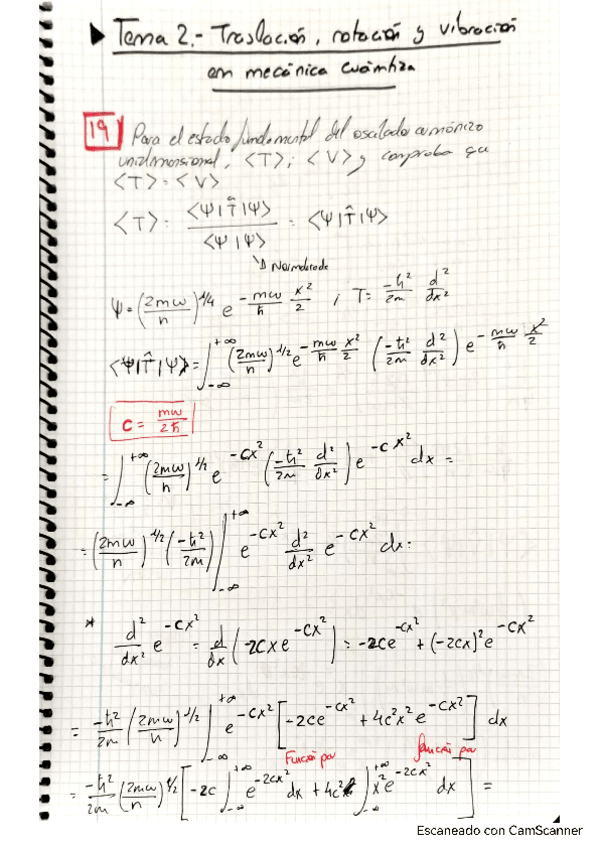 ▶ Tema 2.- Traslación, rotación y vibración
en mecánica cuántica
19 Para el estado fundamental del oscilador armónico
unidimensional, <T>; <V> y comprobar que
<T> = <V>
<T> = <Ψ|T̂|Ψ> / <Ψ|Ψ> = <Ψ|T̂|Ψ>
Normalizada
Ψ = (2mω/h)^1/4 e^(-mω/ħ x²/2) ; T = -ħ²/2m d²/dx²
<Ψ|T̂|Ψ> = ∫_-∞^+∞ (2mω/h)^1/2 e^(-mω/ħ x²/2) (-ħ²/2m d²/dx²) e^(-mω/ħ x²/2)
c = mω/2ħ
= ∫_-∞^+∞ (2mω/h)^1/2 e^(-cx²) (-ħ²/2m d²/dx²) e^(-cx²) dx =
= (2mω/h)^1/2 (-ħ²/2m) ∫_-∞^+∞ e^(-cx²) d²/dx² e^(-cx²) dx =
* d²/dx² e^(-cx²) = d/dx (-2cxe^(-cx²)) = -2ce^(-cx²) + (-2cx)²e^(-cx²)
= -ħ²/2m (2mω/h)^1/2 ∫_-∞^+∞ e^(-cx²) [-2ce^(-cx²) + 4c²x²e^(-cx²)] dx
Función par función par
= -ħ²/2m (2mω/h)^1/2 [-2c ∫_-∞^+∞ e^(-2cx²) dx + 4c² ∫_-∞^+∞ x²e^(-2cx²) dx] =
Escaneado con CamScanner